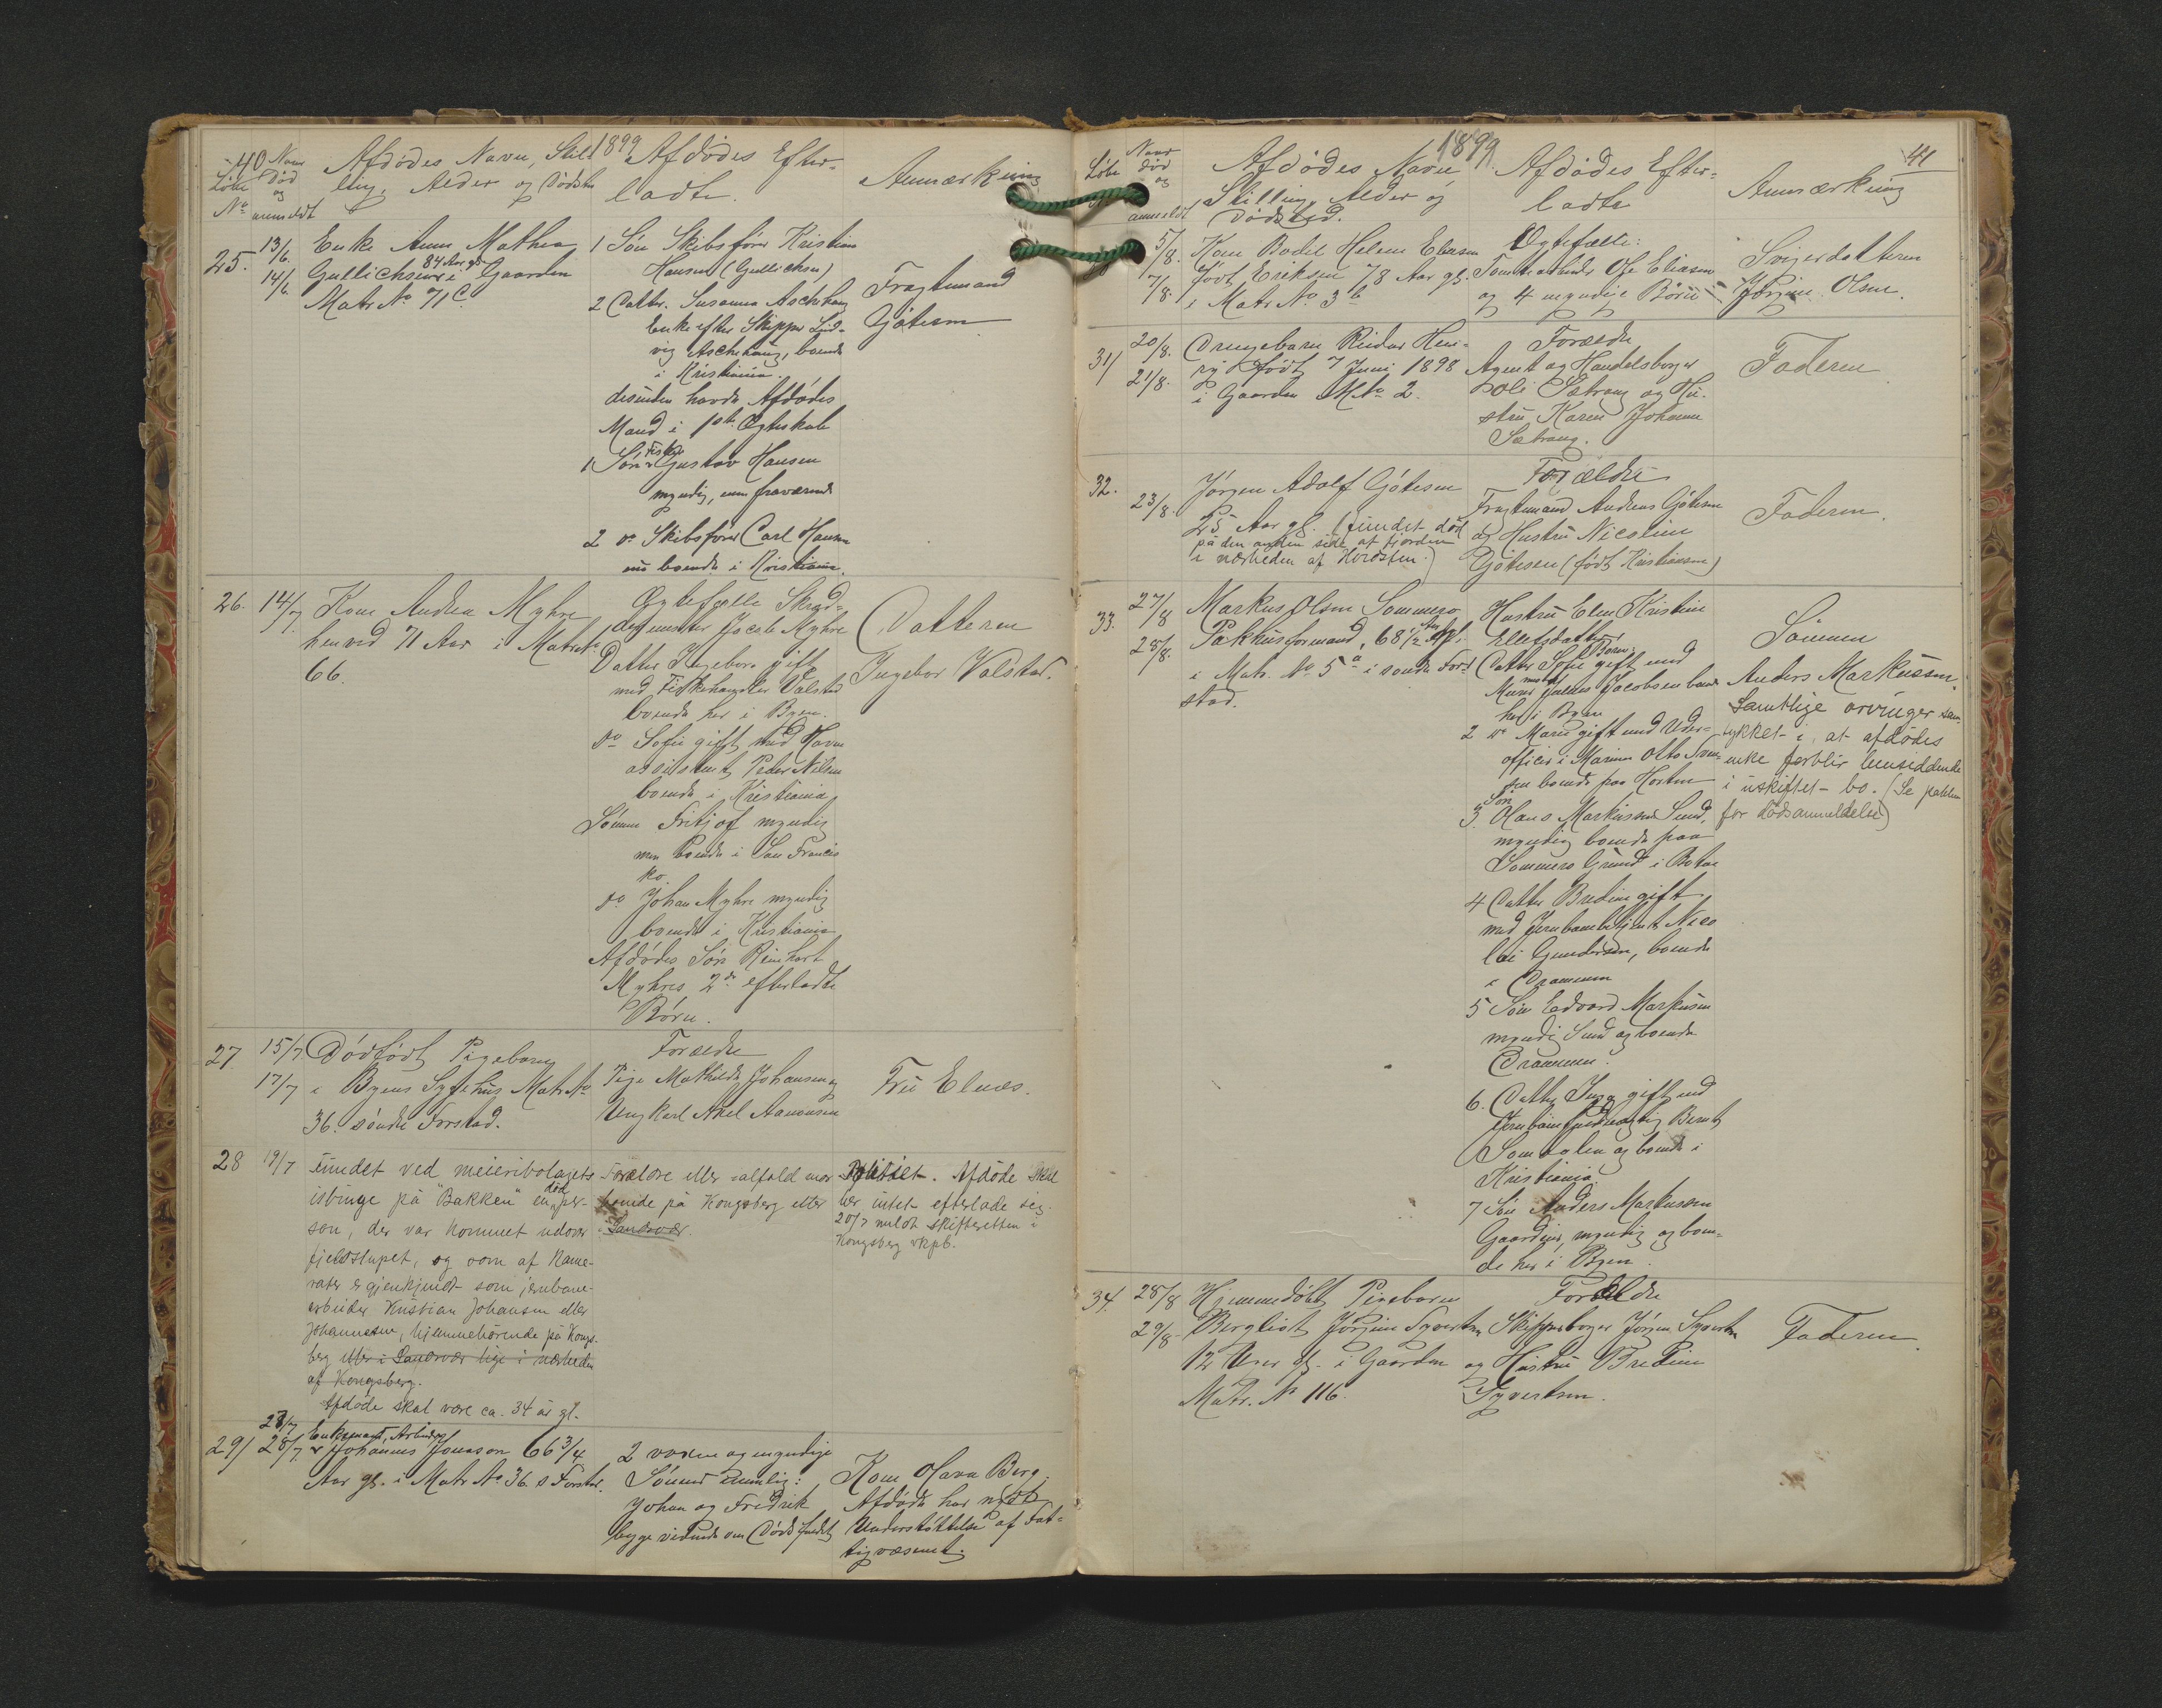 40
1899
Løbe No
Naar død og anmeldt
Afdødes Navn, Stil-
ling, Alder og Dødsted
Afdødes Efter-
ladte.
Anmærkning
25.
13/6.
14/6.
Enke Anne Mathea
Gullichsen 84 Aar gl. i Gaarden
Matr No 71 c
1 Søn Skibsfører Kristian
Hansen (Gullichsen)
2 Datter. Susanna Aschehoug
Enke efter Skipper Lud-
vig Aschehoug, boende
i Kristiania.
desuden havde Afdødes
Mand i 1ste Ægteskab
1 Søn Fisker Gustav Hansen
myndig, men fraværende
2 do Skibsfører Carl Hansen
nu boende i Kristiania.
Fragtemand
Gøtesen
26.
14/7.
Kone Andrea Myhre
henved 71 Aar i Matr No
66.
Ægtefælle Skræd-
dermester Jacob Myhre
Datter Ingebor gift
med Fiskehandler Valstad
boende her i Byen.
do Sofie gift med Havne
assistent Peder Nilsen
boende i Kristiania
Sønnen Fritjof myndig
men boende i San Francis
ko
do Johan Myhre myndig
boende i Kristiania
Afdødes Søn Reinhart
Myhres 2de efterladte
Børn.
Datteren
Ingebor Valstad.
27
15/7
17/7
Dødfødt Pigebarn
i Byens Sygehus Matr No
36. søndre Forstad.
Forældre
Pige Mathilde Johansen og
Ungkarl Axel Aanonsen
Fru Elnæs.
28
19/7
Fundet ved meieribolagets
isbinge på "Bakken" en død per-
son, der var kommet udover
fjeldstupet, og som af kame-
rater er gjenkjendt som jernbane-
arbeider Kristian Johansen eller
Johannesen, hjemmehørende på Kongs-
berg eller i Sandsvær lige i nærheden
af Kongsberg.
Afdøde skal være ca. 34 år gl.
Forældre eller ialfald mor
boende på Kongsberg eller
i Sandsvær.
Politiet. Afdøde skal
her intet efterlade sig.
20/7 meldt skifteretten i
Kongsberg rkpb.
29/
27/7
28/7.
Enkemand, Arbeider
Johannes Jonason 66 3/4
Aar gl. i Matr No 36. s Forstad.
2 voxne og myndige
Sønner nemlig:
Johan og Fredrik
begge vidende om Dødsfaldet
Kone Olava Berg.
Afdøde har nydt
Understøttelse af Fat-
tigvæsenet.
41
1899.
Løbe
Naar død og
anmeldt
Afdødes Navn
Stilling, Alder og
Dødsted.
Afdødes Efter-
ladte
Anmærkning
5/8.
7/8.
Kone Bodil Helene Eliasen
født Eriksen 78 Aar gl.
i Matr No 3 b
Ægtefælle:
Tomtearbeider Ole Eliasen
og 4 myndige Børn
Svigerdatteren
Jørgine Olsen.
31/
20/8.
21/8.
Drengebarn Reidar Hen-
rij født 7 Juni 1898
i Gaarden M No 2.
Forældre
Agent og Handelsborger
Sætrang og Hu-
stru Karen Johanne
Sætrang.
Faderen
32.
23/8.
Jørgen Adolf Gøtesen
25 Aar gl. (fundet død
på den anden side af fjorden
i nærheden af Horosten.)
Forældre
Fragtemand Andreas Gøtesen
og Hustru Nicoline
Gøtesen (født Kristiansen)
Faderen.
33.
27/8
28/8.
Markus Olsen Sommero
Pakhusformand, 68 1/2 Aar gl.
i Matr. No 5 a i søndre For-
stad.
Hustru Elen Kristine
Ellefsdatter
Børn:
Datter Sofie gift med
Murmester Julius Jacobsen boende
her i Byen
2 do Marie gift med Under-
officer i Marinen Otto Iver-
sen boende paa Horten
3. Søn Olaus Markussen Sund,
myndig boende paa
Sommero Grund i Botne
4 Datter Bredine gift
med Jernbanebetjent Nico
lai Gundersen, boende
i Drammen
5 Søn Edvard Markusen
myndig Sund og boende
Drammen.
6. Datter Inga gift med
Jernbanefuldmægtig Bernt
og boende i
Kristiania.
7 Søn Anders Markussen
Gaardeier, myndig og boen-
de her i Byen.
Sønnen
Anders Markussen.
Samtlige arvinger sam-
tykket i, at afdødes
enke forblir hensiddende
i uskiftet bo. (Se pakken
for dødsanmeldelser)
34.
28/8
29/8.
Hjemmedøbt Pigebarn
Bergliot Jørgine Syvertsen
12 Uger gl. i Gaarden
Matr. No 116.
Forældre
Skipperborger Jørgen Syvertsen
og Hustru Bredine
Syvertsen.
Faderen.